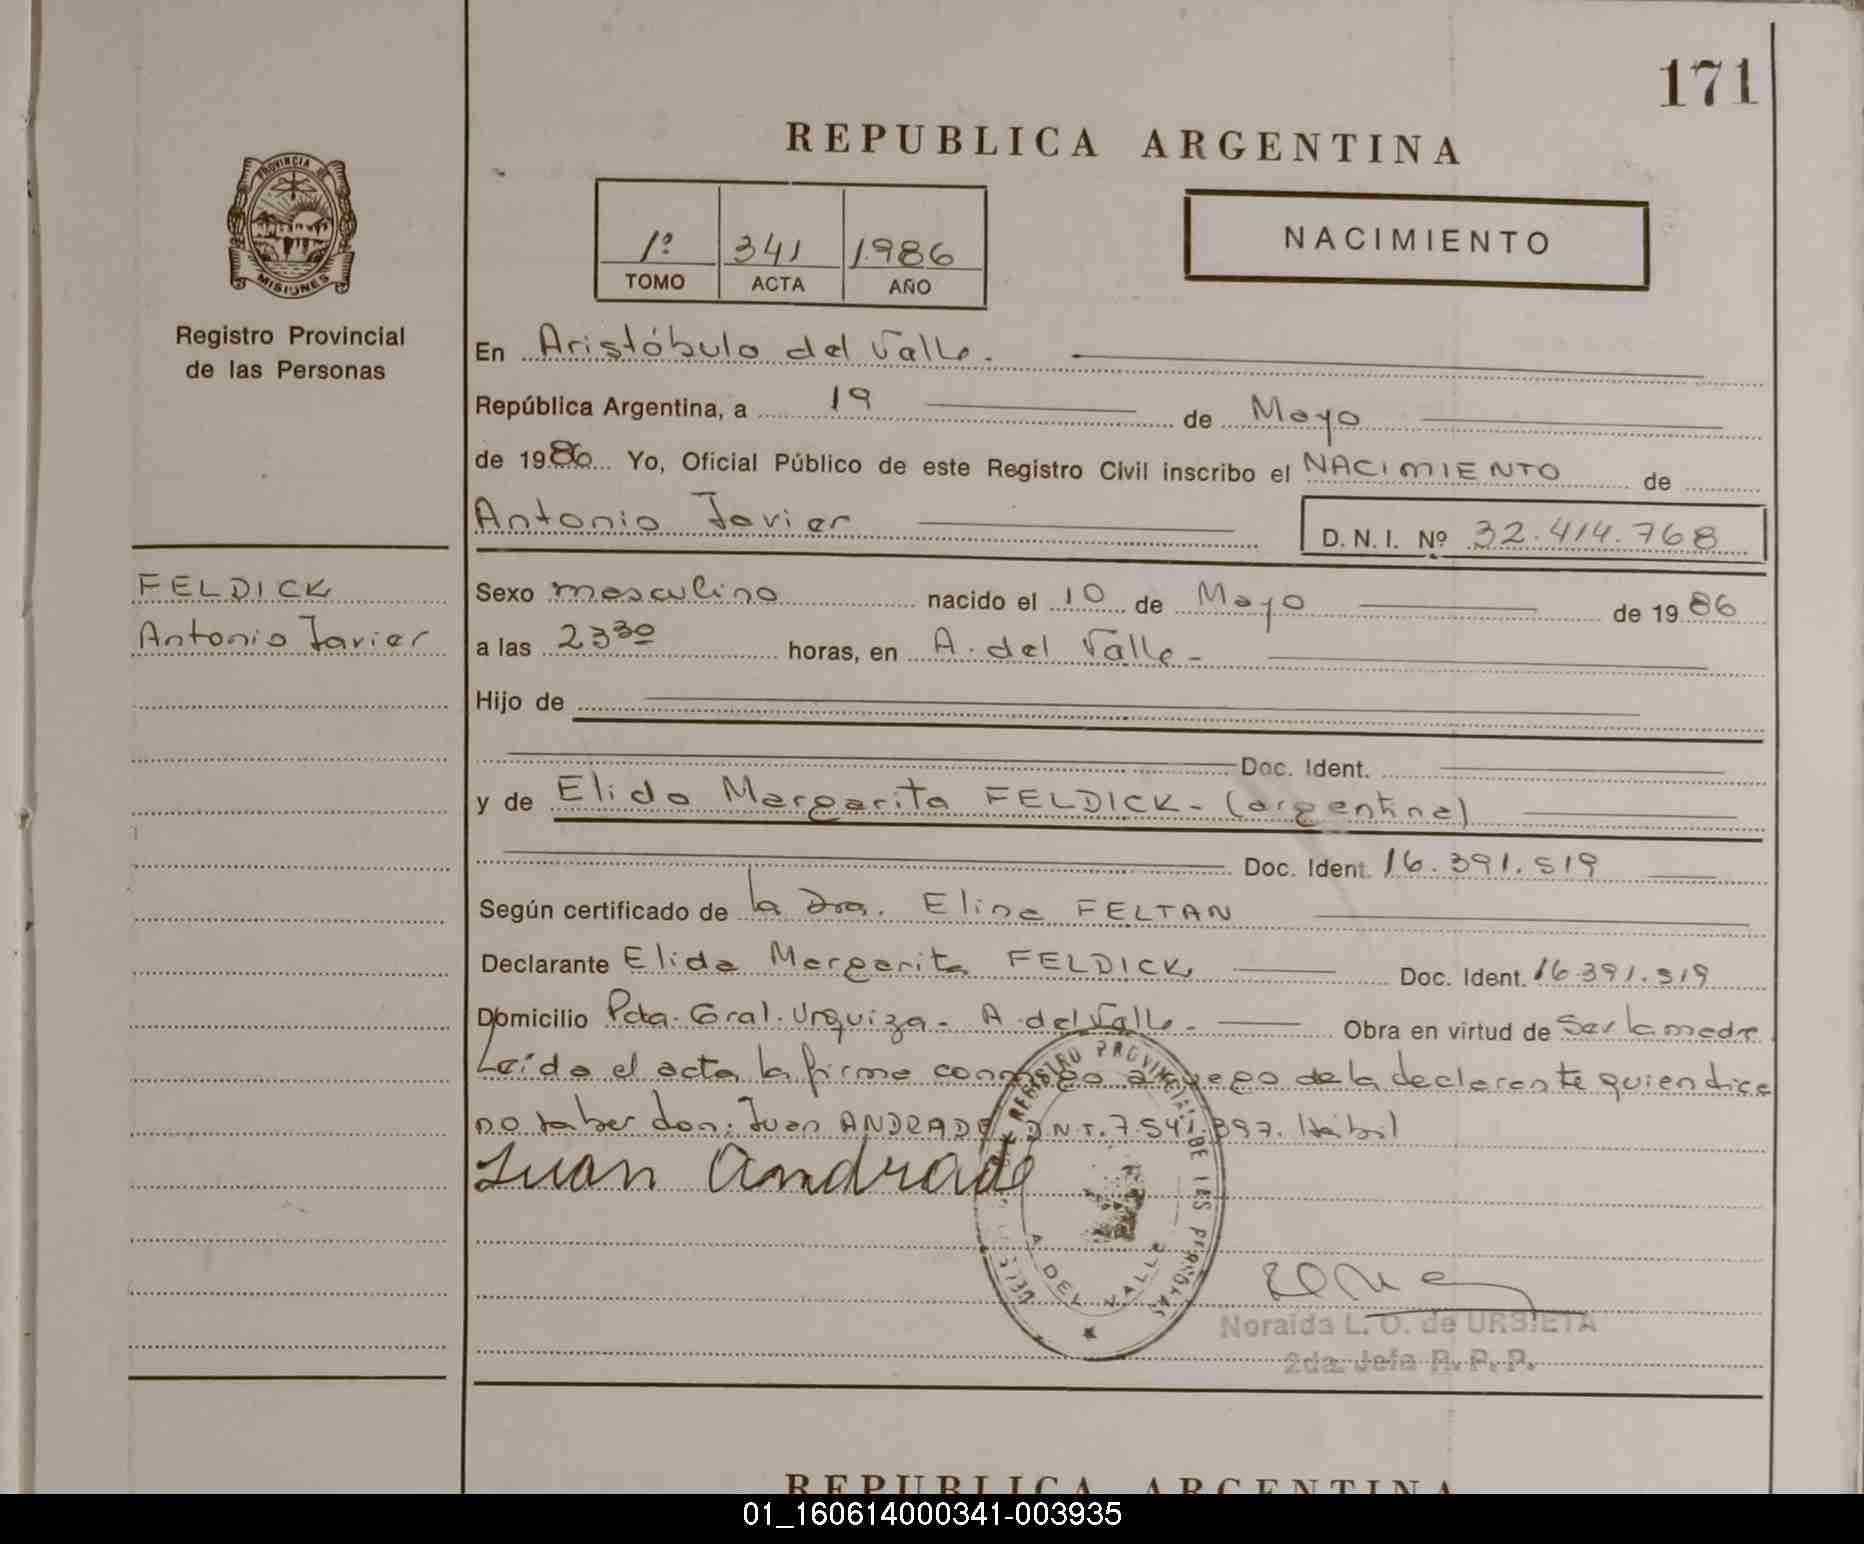 171
REPUBLICA ARGENTINA
PROVINCIA DE
MISIONES
Registro Provincial
de las Personas
1º 341 1.986
TOMO ACTA AÑO
NACIMIENTO
En Aristóbulo del Valle.
República Argentina, a 19 de Mayo
de 1986 Yo, Oficial Público de este Registro Civil inscribo el NACIMIENTO de
Antonio Javier D.N.I. Nº 32.414.768
FELDICK
Antonio Javier
Sexo masculino nacido el 10 de Mayo de 1986
a las 23 30 horas, en A. del Valle-
Hijo de
Doc. Ident.
y de Elida Margarita FELDICK- (argentina)
Doc. Ident. 16.391.519
Según certificado de la Dra. Elina FELTAN
Declarante Elida Margarita FELDICK Doc. Ident. 16.391.519
Domicilio Pcta. Gral. Urquiza- A. del Valle- Obra en virtud de Ser la madre
Leída el acta la firma conmigo a ruego de la declarante quien dice
no saber don: Juan ANDRADE D.N.I. 7.541.397. Hábil
Juan Andrade
REGISTRO PROVINCIAL DE LAS PERSONAS
A. DEL VALLE
Noraida L. O. de URBIETA
2da. Jefa R. P. P.
REPUBLICA ARGENTINA
01_160614000341-003935